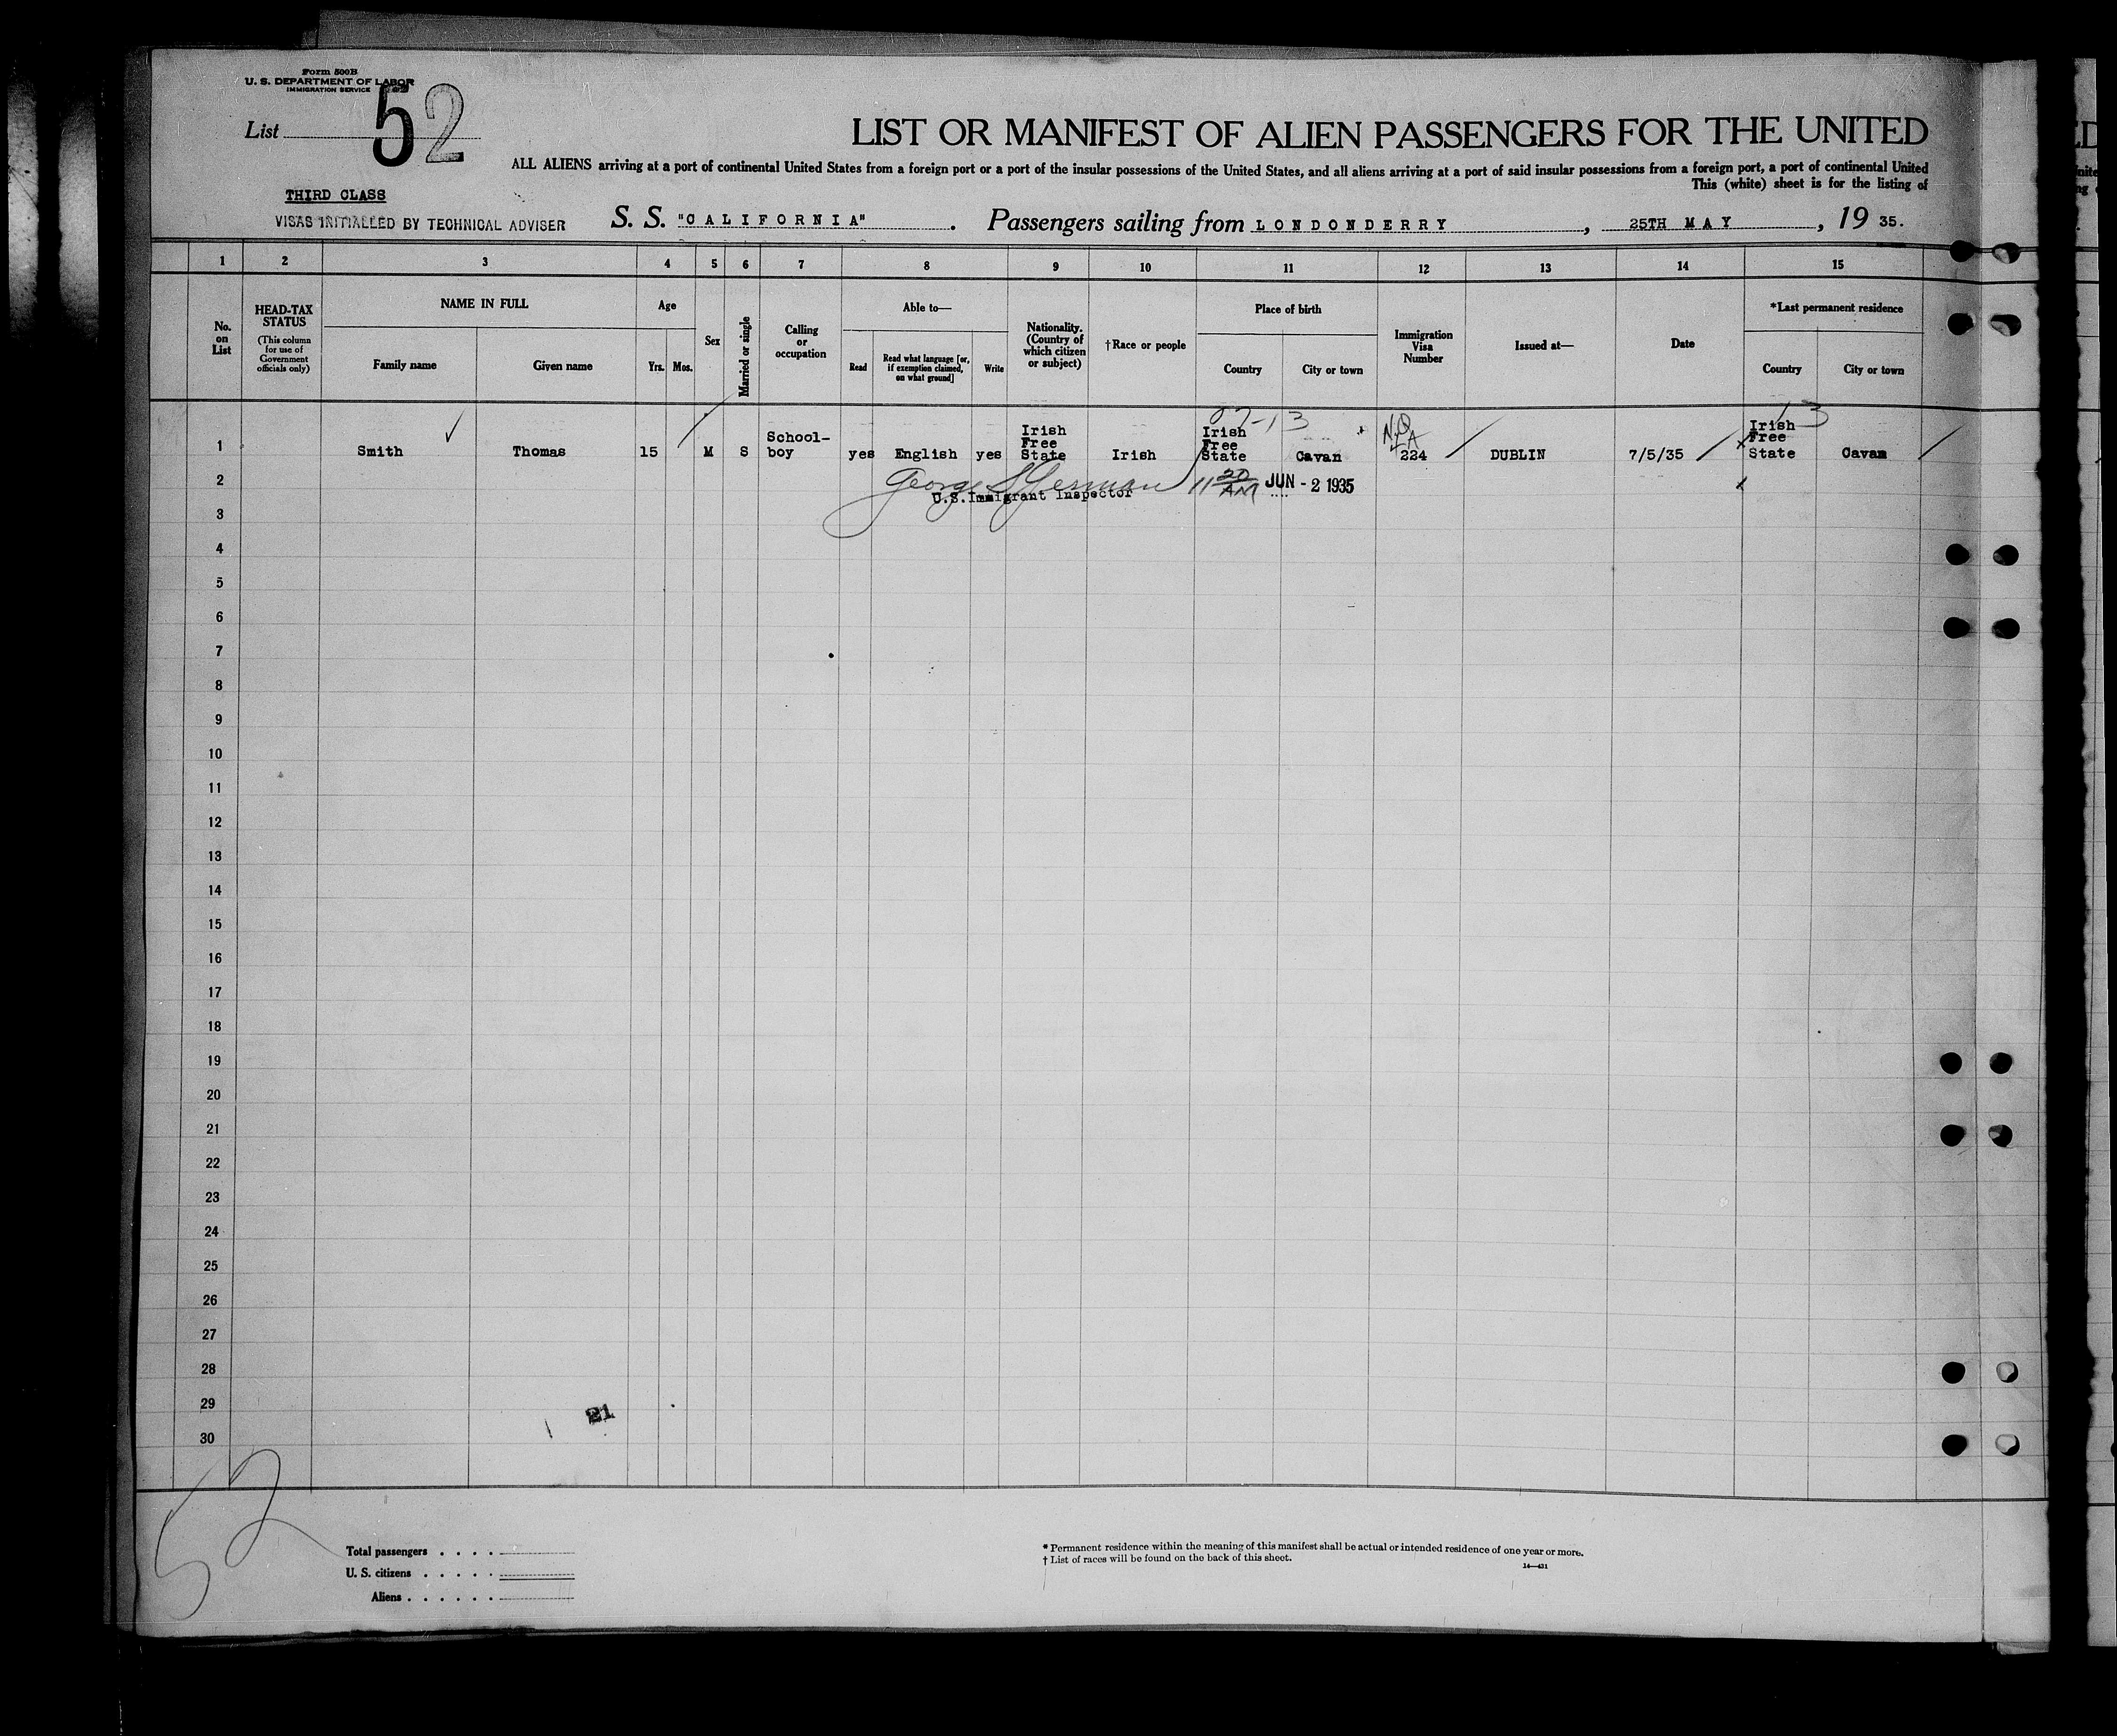 Form 500B
U. S. DEPARTMENT OF LABOR
IMMIGRATION SERVICE
List 52
LIST OR MANIFEST OF ALIEN PASSENGERS FOR THE UNITED
ALL ALIENS arriving at a port of continental United States from a foreign port or a port of the insular possessions of the United States, and all aliens arriving at a port of said insular possessions from a foreign port, a port of continental United
This (white) sheet is for the listing of
THIRD CLASS
VISAS INITIALLED BY TECHNICAL ADVISER
S. S. "CALIFORNIA". Passengers sailing from LONDONDERRY, 25TH MAY, 19 35.
1 2 3 4 5 6 7 8 9 10 11 12 13 14 15
No. on List
HEAD-TAX STATUS
(This column for use of Government officials only)
NAME IN FULL
Family name
Given name
Age
Yrs. Mos.
Sex
Married or single
Calling or occupation
Able to—
Read
Read what language [or, if exemption claimed, on what ground]
Write
Nationality. (Country of which citizen or subject)
†Race or people
Place of birth
Country
City or town
Immigration Visa Number
Issued at—
Date
*Last permanent residence
Country
City or town
13
NQ
1 Smith Thomas 15 M S School-boy yes English yes Irish Free State Irish Irish Free State Cavan 224 DUBLIN 7/5/35 Irish Free State Cavan
2 George Sherman 11 20 AM JUN - 2 1935
U.S. Immigrant Inspector
3
4
5
6
7
8
9
10
11
12
13
14
15
16
17
18
19
20
21
22
23
24
25
26
27
28
29
21
30
52
Total passengers . . . .
U. S. citizens . . . . .
Aliens . . . . . .
* Permanent residence within the meaning of this manifest shall be actual or intended residence of one year or more.
† List of races will be found on the back of this sheet.
14—431